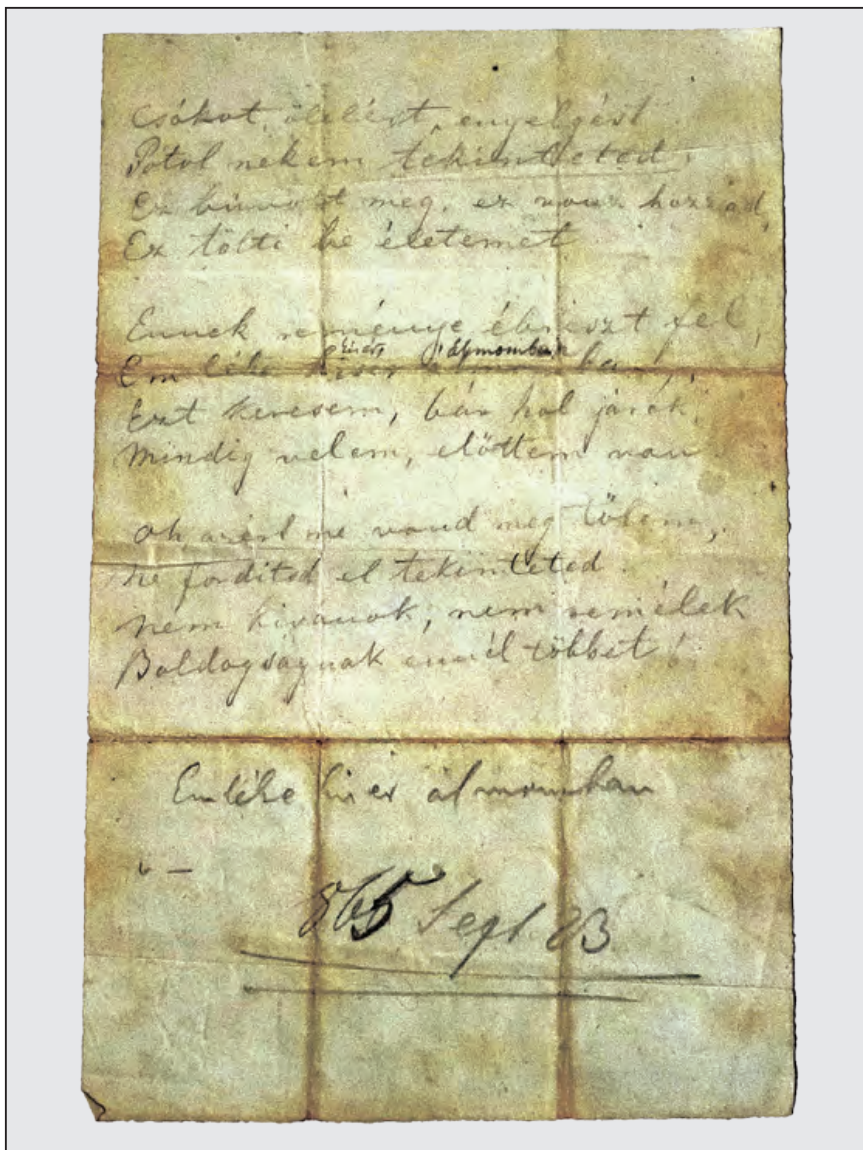 Csókot, ölelést, enyelgést
Pótol nékem tekinteted,
Ez bűvölt meg, ez vonz hozzád,
Ez tölti be életemet

Ennek reménye ébreszt fel,
kisér álmomban
Emléke kisér álmomban,
Ezt keresem, bár hol járok,
Mindig velem, előttem van.

Oh azért ne vond meg tőlem,
Ne forditsd el tekinteted.
Nem kivanok, nem remélek
Boldogságnak ennél többet!

Emléke kisér álmomban
865 Sept. 23